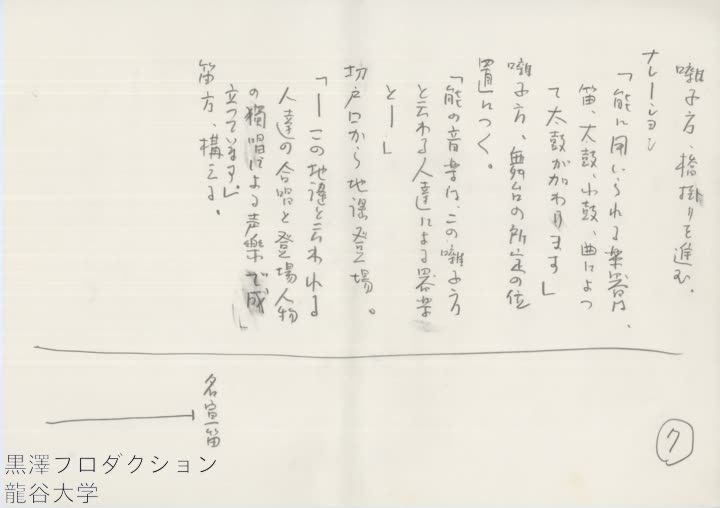 囃子方、橋掛りを進む。
ナレーション
「能に用いられる楽器は、
笛、大鼓、小鼓、曲によつ
て太鼓が加わります」
囃子方、舞台の所定の位
置につく。
「能の音楽は、この囃子方
と云われる人達による器楽
と―」
切戸口から地謡登場。
「―この地謡と云われる
人達の合唱と登場人物
の独唱による声楽で成
立っています。」
笛方、構える。
名宣笛
7
黒澤プロダクション
龍谷大学